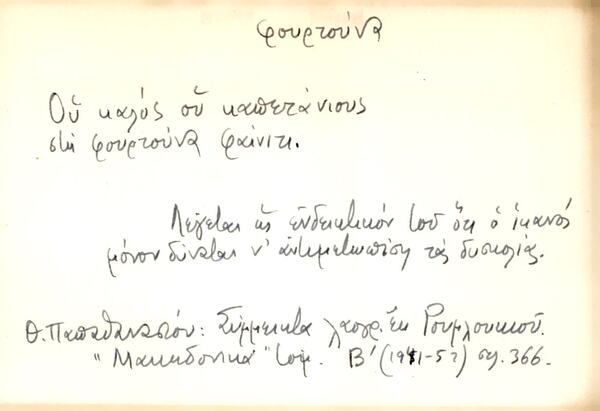 φουρτούνα
Οὗ καλός οὗ καπετάνιους
στη φουρτούνα φαίνιτι.
Λέγεται ὡς ἐνδεικτικόν τοῦ ὅτι ὁ ἱκανός
μόνον δύναται ν' ἀντιμετωπίση τάς δυσκολίας.
Θ. Παπαθανασίου: Σύμμεικτα λαογρ. ἐκ Ρουμλουκιοῦ.
"Μακεδονικά" τομ. Β' (1941-52) σελ. 366.